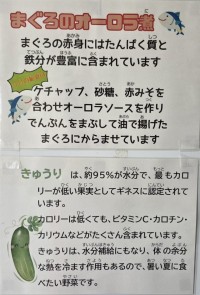 まぐろのオーロラ煮
まぐろの赤身にはたんぱく質と
鉄分が豊富に含まれています
ケチャップ、砂糖、赤みそを
合わせオーロラソースを作り
でんぷんをまぶして油で揚げた
まぐろにからませています
きゅうり は、約95%が水分で、最もカロ
リーが低い果実としてギネスに認定されて
います。
カロリーは低くても、ビタミンC・カロチン・
カリウムなどがたくさん含まれています。
きゅうりは、水分補給にもなり、体の余分
な熱を冷ます作用もあるので、暑い夏に食
べたい野菜です。